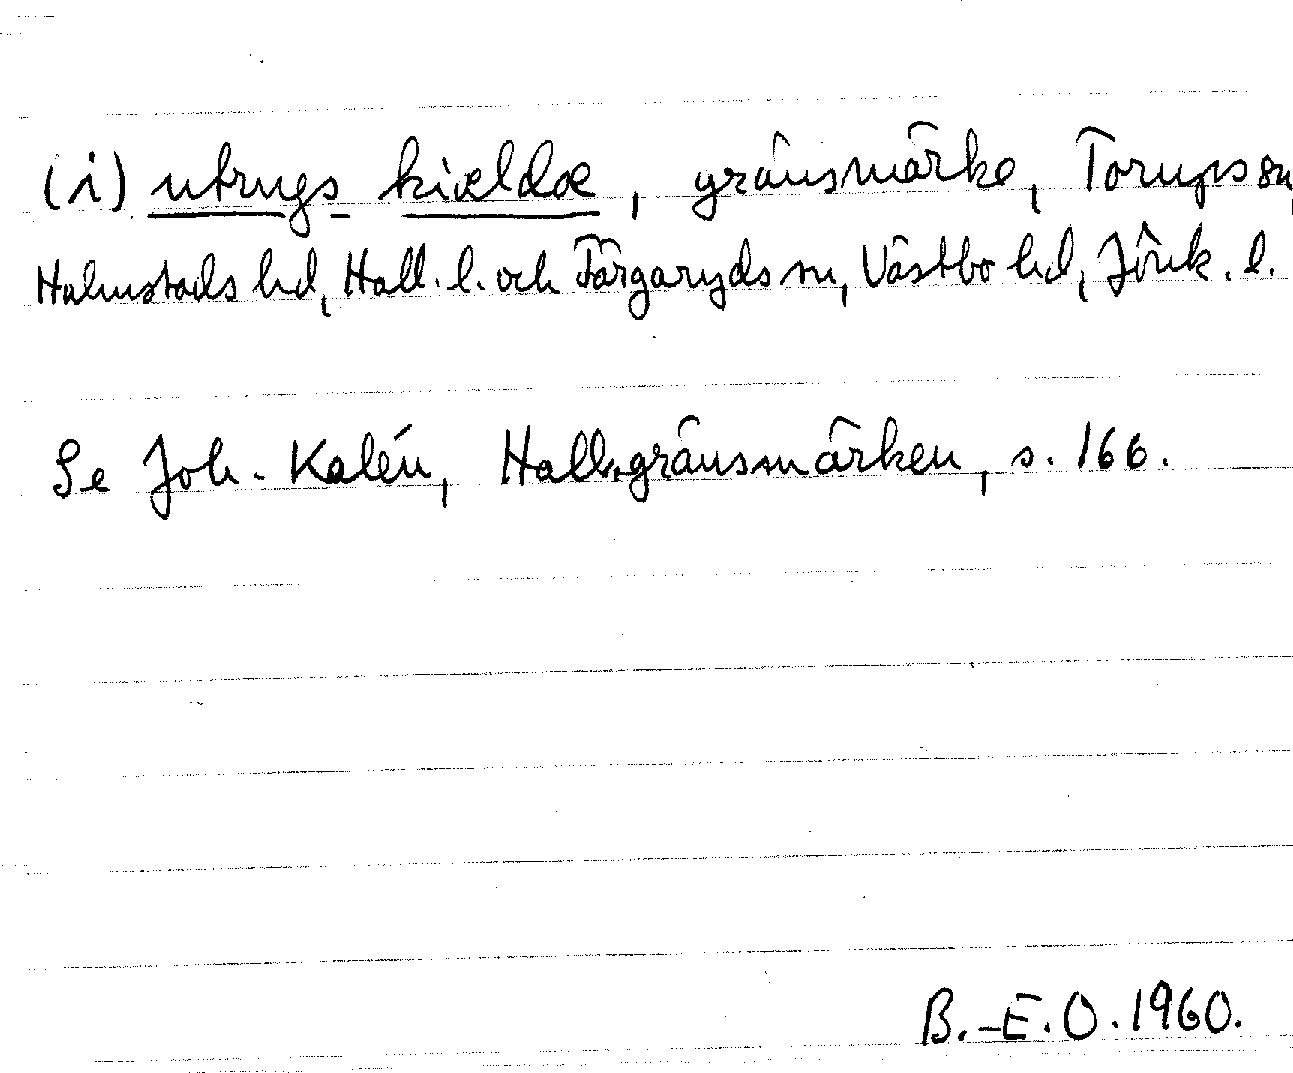 (i) utrugs kiældæ, gränsmärke, Torups sn,
Halmstads hd, Hall. l. och Färgaryds sn, Västbo hd, Jönk. l.
Se Joh. Kalén, Hall. gränsmärken, s. 166.
B.-E. O. 1960.